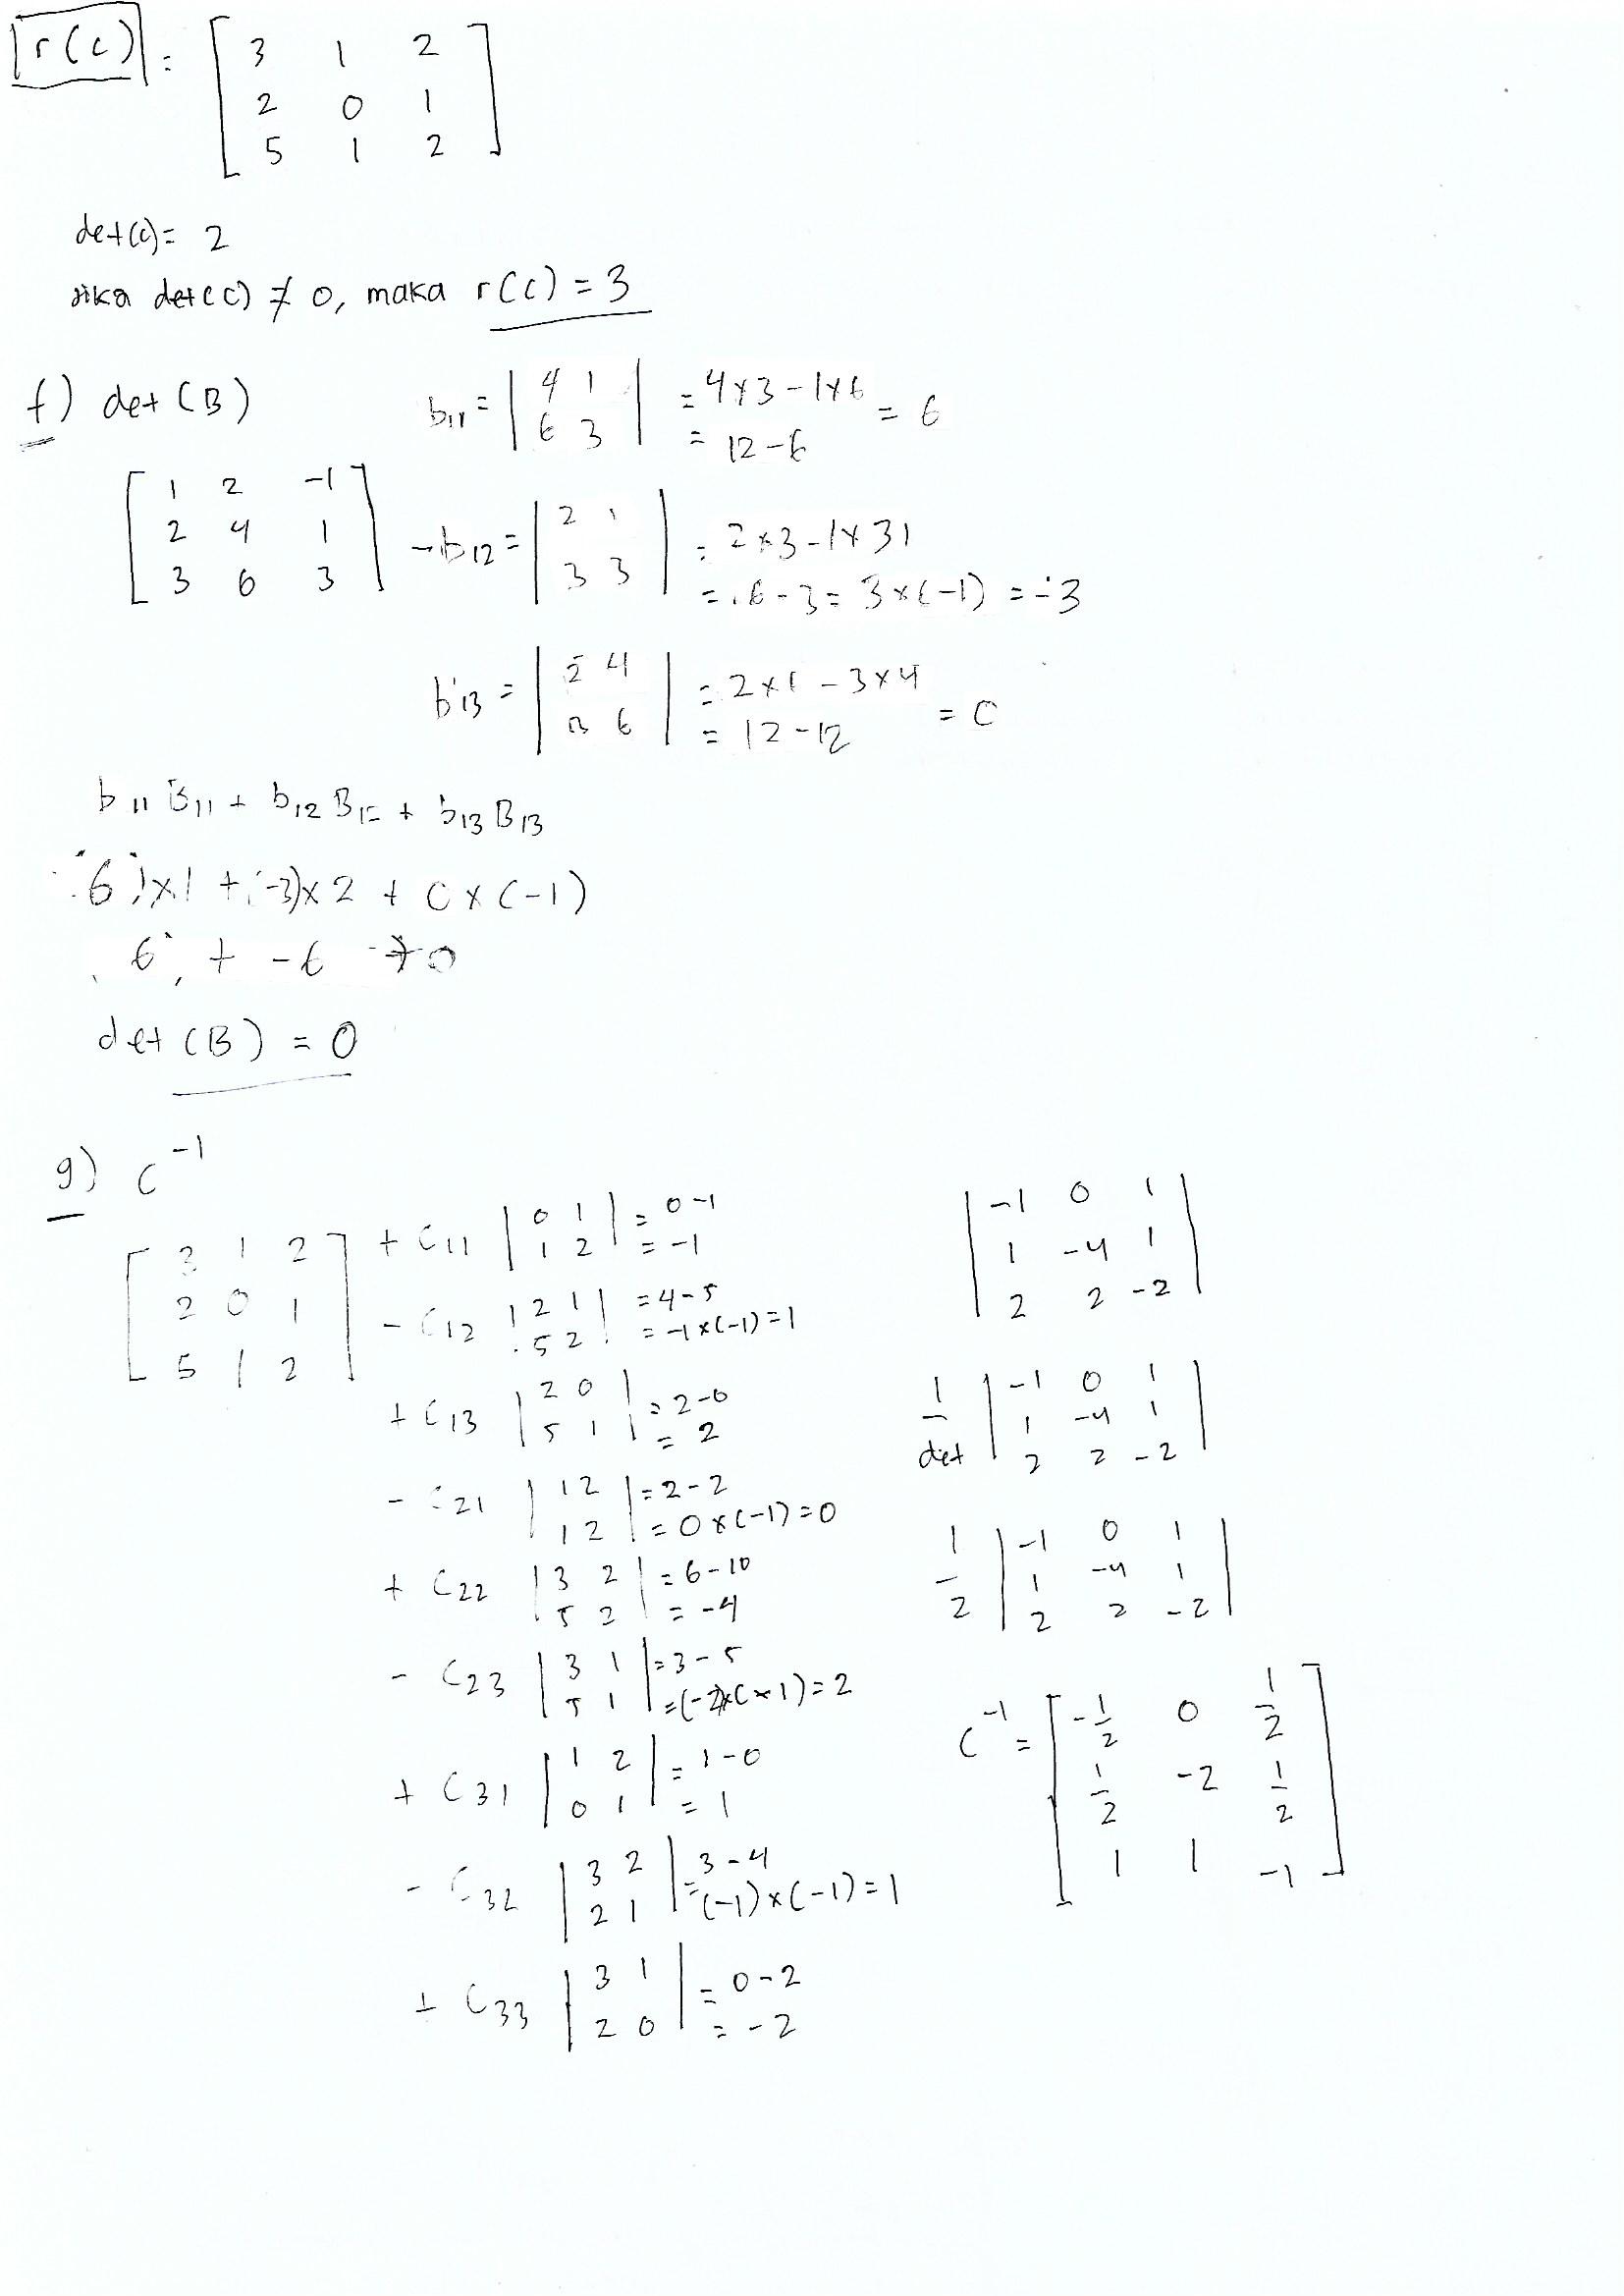 r(c) = [ 3 1 2
2 0 1
5 1 2 ]
det(c) = 2
Jika det(c) ≠ 0, maka r(c) = 3
f) det (B)
[ 1 2 -1
2 4 1
3 6 3 ]
b11 = | 4 1
6 3 | = 4×3 - 1×6 = 6
= 12 - 6
-b12 = | 2 1
3 3 | = 2×3 - 1×31
= 6 - 3 = 3×(-1) = -3
b13 = | 2 4
3 6 | = 2×6 - 3×4 = 0
= 12 - 12
b11 B11 + b12 B12 + b13 B13
(6)×1 + (-3)×2 + 0×(-1)
6 + -6 + 0
det (B) = 0
g) C-1
[ 3 1 2
2 0 1
5 1 2 ]
+ C11 | 0 1
1 2 | = 0-1
= -1
- C12 | 2 1
5 2 | = 4-5
= -1×(-1) = 1
+ C13 | 2 0
5 1 | = 2-0
= 2
- C21 | 1 2
1 2 | = 2-2
= 0×(-1) = 0
+ C22 | 3 2
5 2 | = 6-10
= -4
- C23 | 3 1
5 1 | = 3-5
= (-2)×(-1) = 2
+ C31 | 1 2
0 1 | = 1-0
= 1
- C32 | 3 2
2 1 | = 3-4
(-1)×(-1) = 1
+ C33 | 3 1
2 0 | = 0-2
= -2
| -1 0 1
1 -4 1
2 2 -2 |
1/det | -1 0 1
1 -4 1
2 2 -2 |
1/2 | -1 0 1
1 -4 1
2 2 -2 |
C-1 = [ -1/2 0 1/2
1/2 -2 1/2
1 1 -1 ]